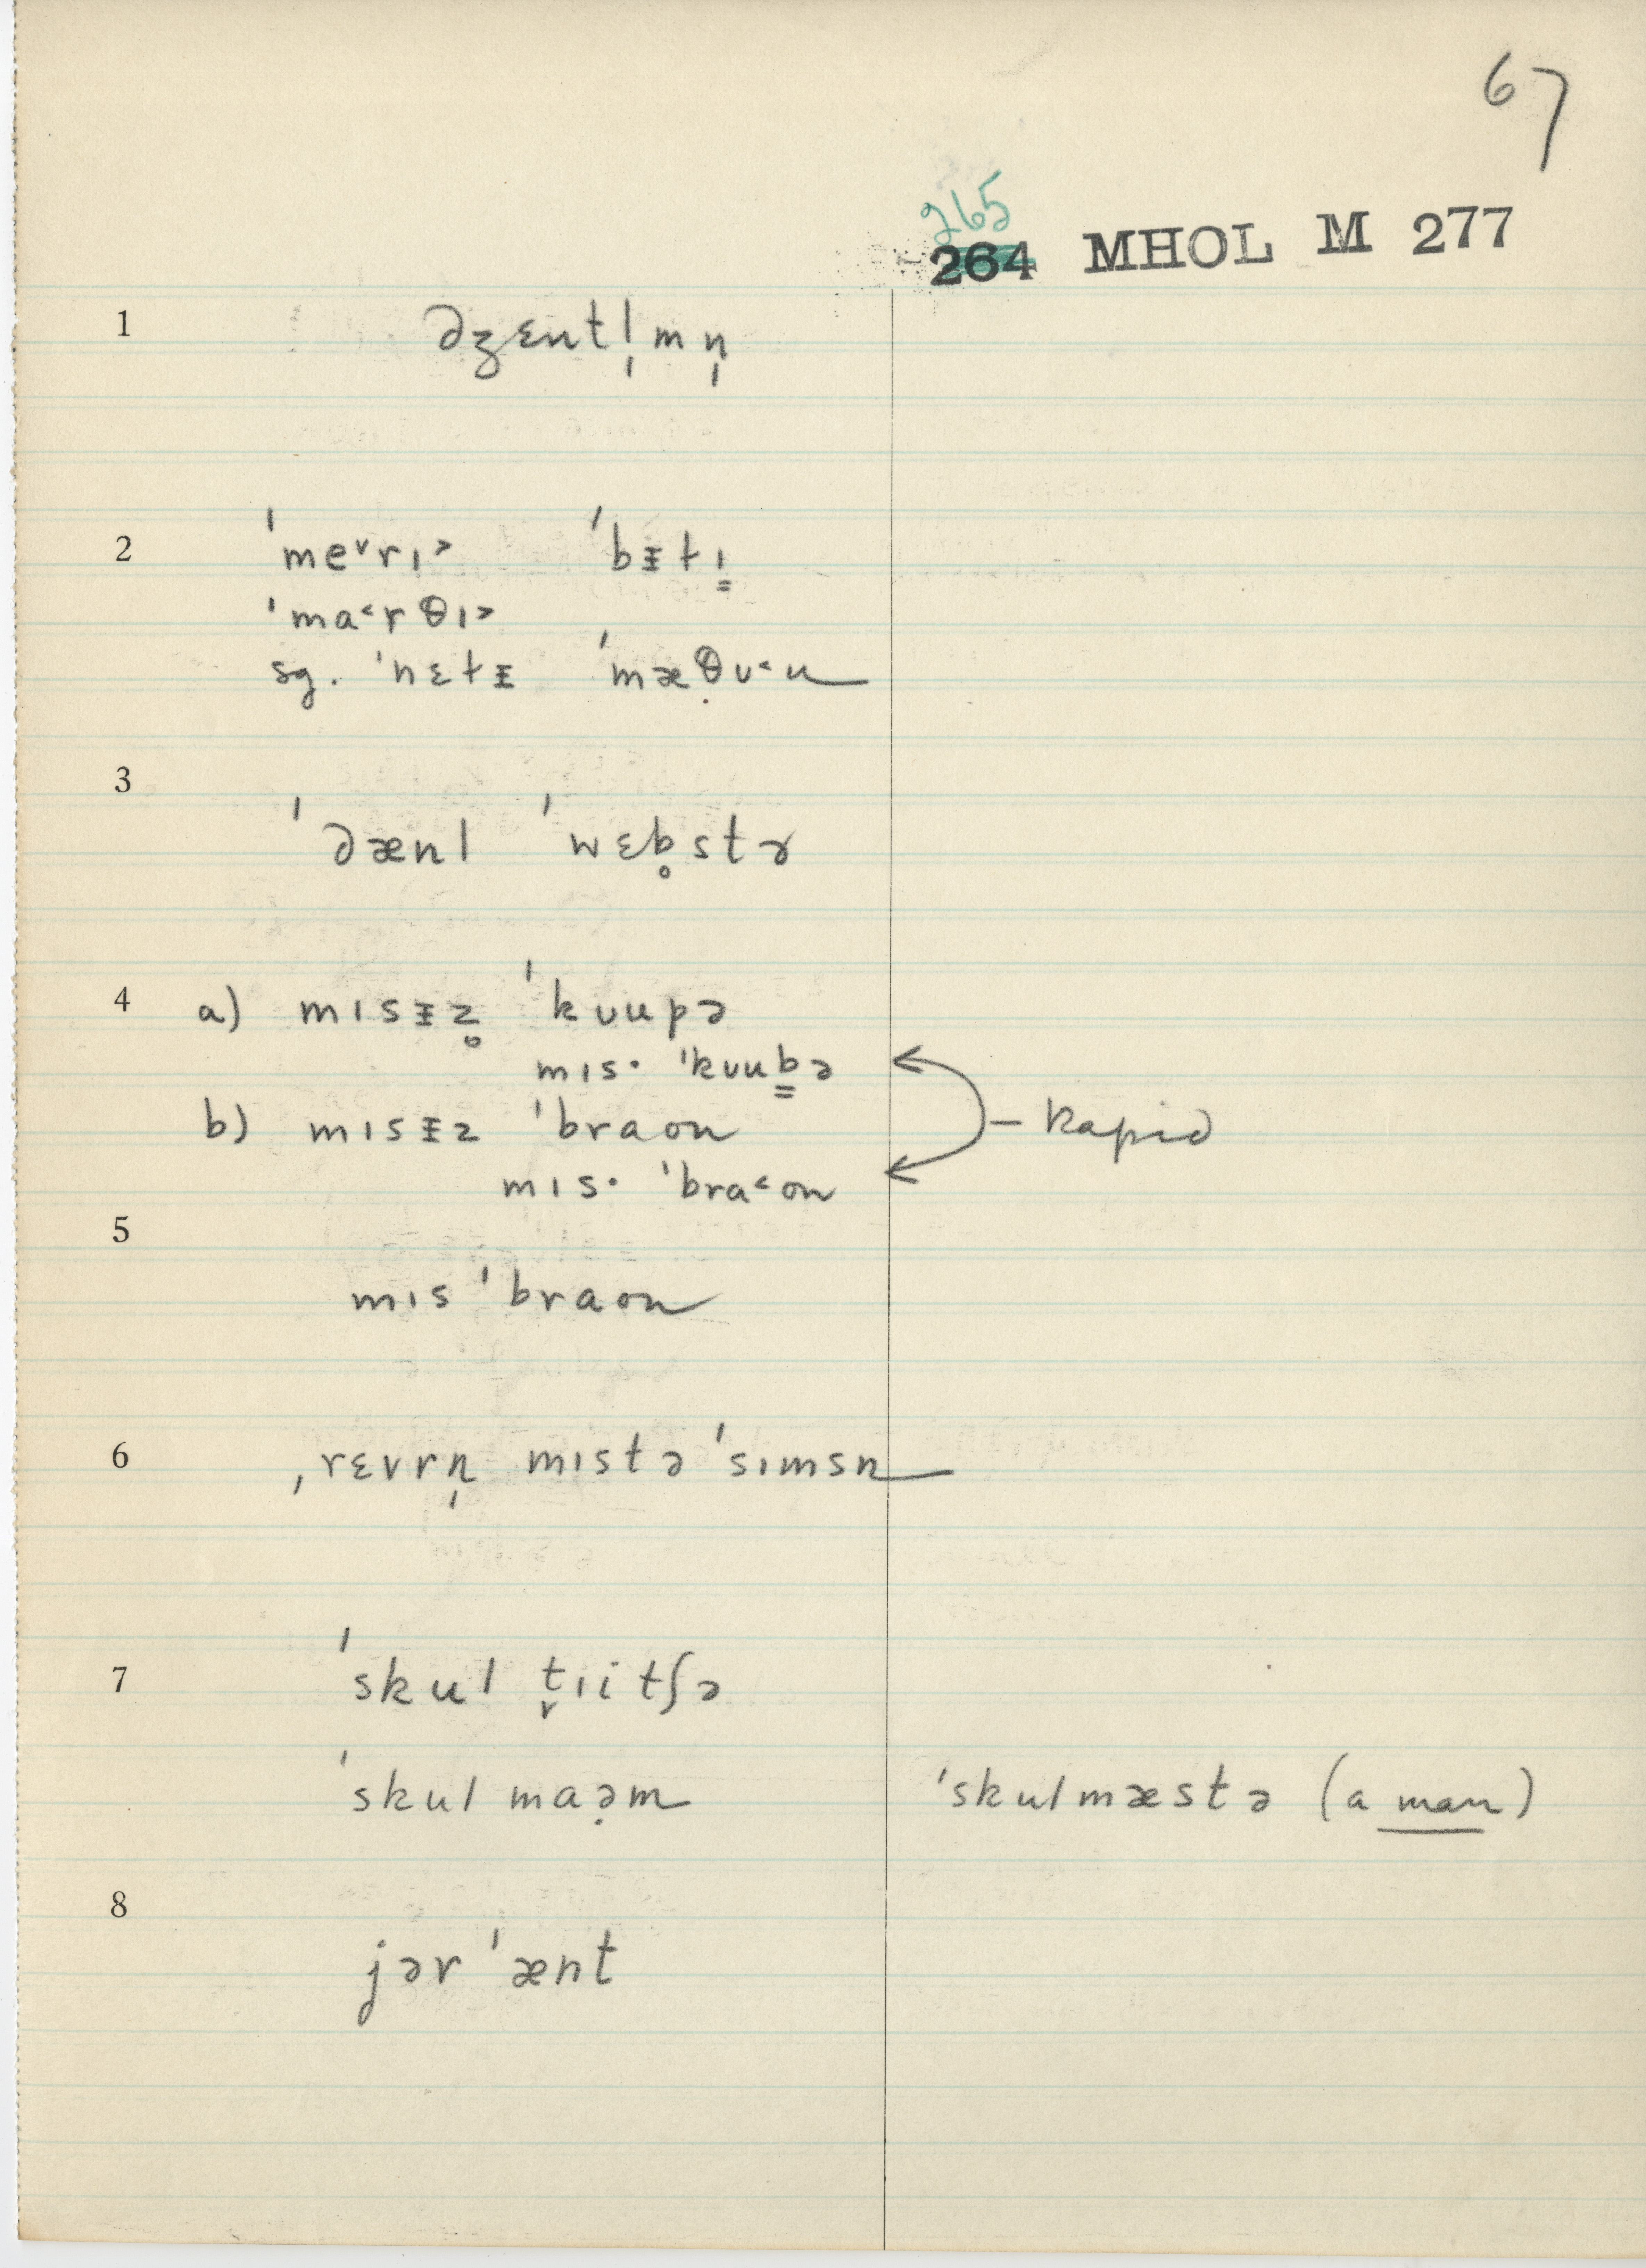 67
265
264 MHOL M 277
1 dʒɛntl̩mn̩
2 ˈme˅rɪ˃ ˈbᵻtɪ̳
ˈma˂rθɪ˃
sg. ˈnɛtᵻ ˈmæθ̣ᴜ˂u
3 ˈdænl ˈwɛb̥stɚ
4 a) mɪsᵻz̥ ˈkᴜupə
mɪs· ˈkᴜub̳ə
b) mɪsᵻz ˈbraon
mɪs· ˈbra˂on
Rapid
5 mɪs ˈbraon
6 ˌrɛvrn̩ mɪstə ˈsɪmsn
7 ˈskul t̬ɪitʃə
ˈskul maə̣m ˈskulmæstə (a man)
8 jər ˈænt